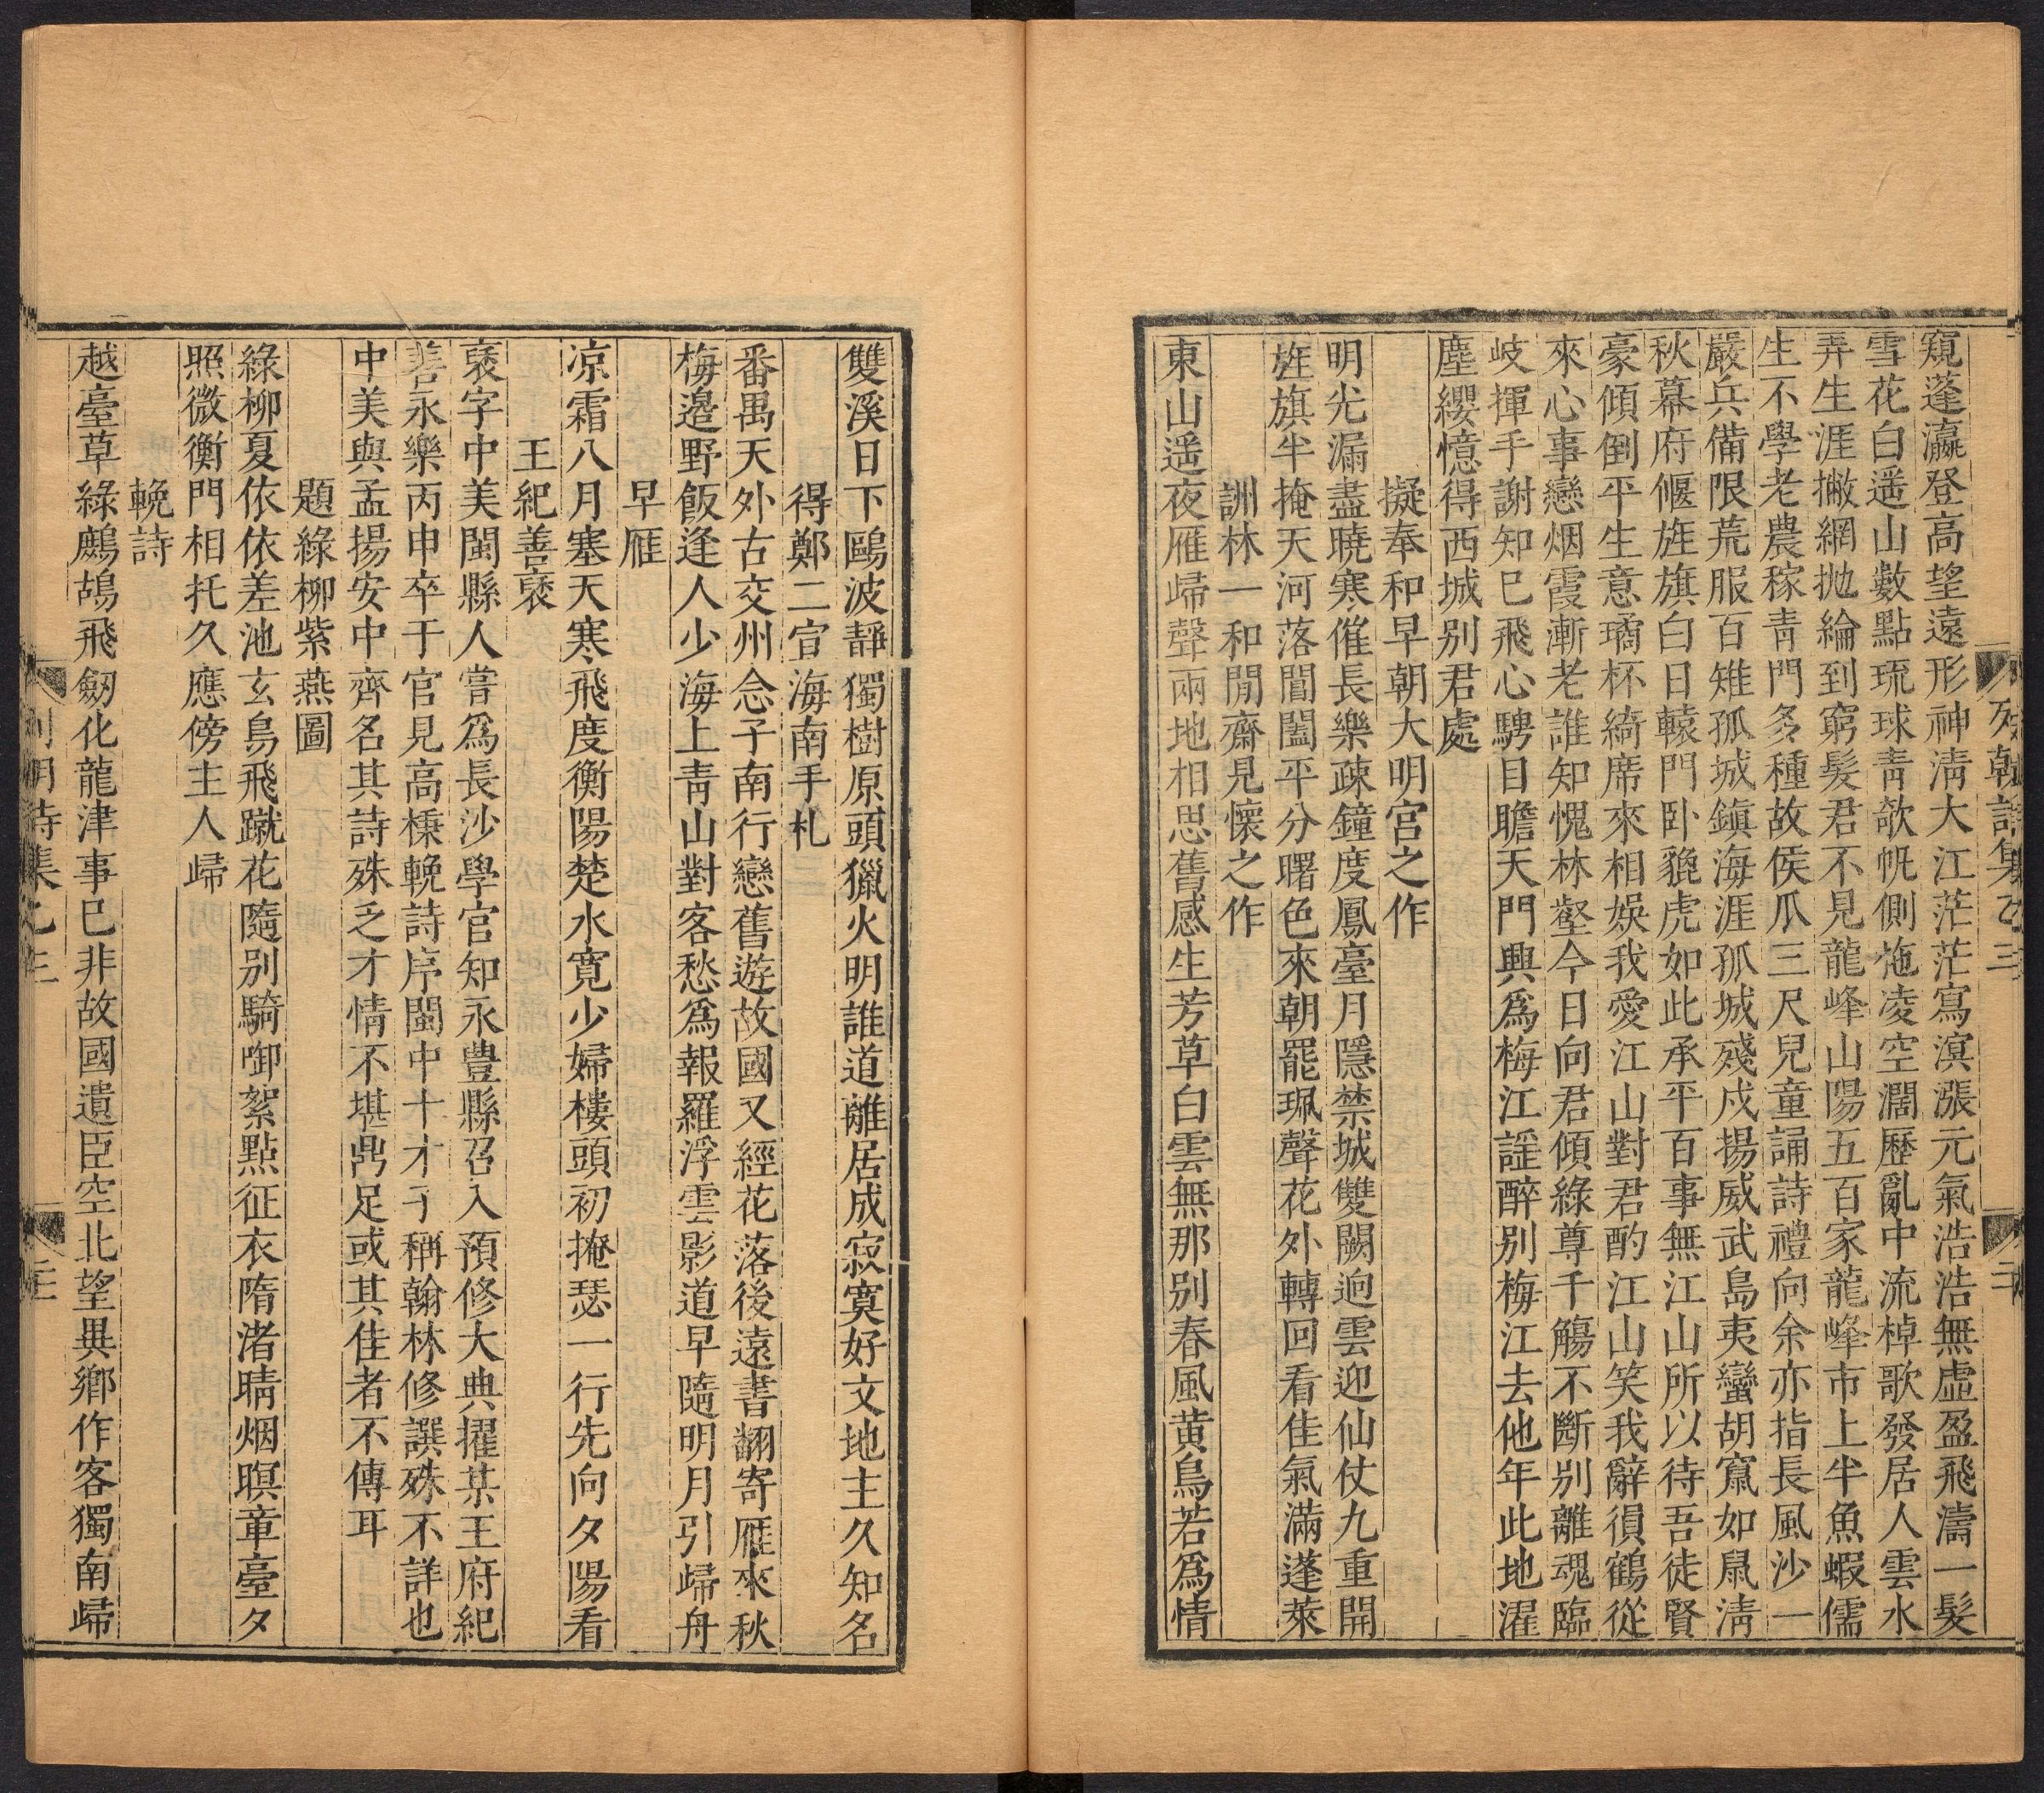 列朝詩集乙三
窺蓬瀛登高望遠形神淸大江茫茫寫溟漲元氣浩浩無虛盈飛濤一髮
雪花白遥山數點琉球靑欹帆側柂凌空濶歷亂中流棹歌發居人雲水
弄生涯撇網抛綸到窮髮君不見龍峰山陽五百家龍峰市上半魚蝦儒
生不學老農稼靑門多種故侯瓜三尺兒童誦詩禮向余亦指長風沙一
嚴兵備限荒服百雉孤城鎮海涯孤城殘戍揚威武島夷蠻胡竄如鼠淸
秋幕府偃旌旗白日轅門卧貔虎如此承平百事無江山所以待吾徒賢
豪傾倒平生意璚杯綺席來相娛我愛江山對君酌江山笑我辭猿鶴從
來心事戀烟霞漸老誰知愧林壑今日向君傾綠尊千觴不斷别離魂臨
岐揮手謝知已飛心騁目瞻天門興爲梅江謡醉别梅江去他年此地濯
塵纓憶得西城别君處
擬奉和早朝大明宫之作
明光漏盡曉寒催長樂疎鐘度鳳臺月隱禁城雙闕迥雲迎仙仗九重開
旌旗半掩天河落閶闔平分曙色來朝罷珮聲花外轉回看佳氣滿蓬萊
詶林一和閒齋見懷之作
東山遥夜雁歸聲兩地相思舊感生芳草白雲無那别春風黄鳥若爲情
雙溪日下鷗波靜獨樹原頭獵火明誰道離居成寂寞好文地主久知名
得鄭二宣海南手札
番禺天外古交州念子南行戀舊遊故國又經花落後遠書翻寄雁來秋
梅邉野飯逢人少海上靑山對客愁爲報羅浮雲影道早隨明月引歸舟
早雁
凉霜八月塞天寒飛度衡陽楚水寛少婦樓頭初掩瑟一行先向夕陽看
王紀善褒
褒字中美閩縣人嘗爲長沙學官知永豊縣召入預修大典擢某王府紀
善永樂丙申卒于官見高棅輓詩序閩中十才子稱翰林修譔殊不詳也
中美與孟揚安中齊名其詩殊乏才情不堪鼎足或其佳者不傳耳
題綠柳紫燕圖
綠柳夏依依差池玄鳥飛蹴花隨别騎啣絮點征衣隋渚晴烟暝章臺夕
照微衡門相托久應傍主人歸
輓詩
越臺草綠鷓鴣飛劒化龍津事已非故國遺臣空北望異鄉作客獨南歸
列朝詩集乙三